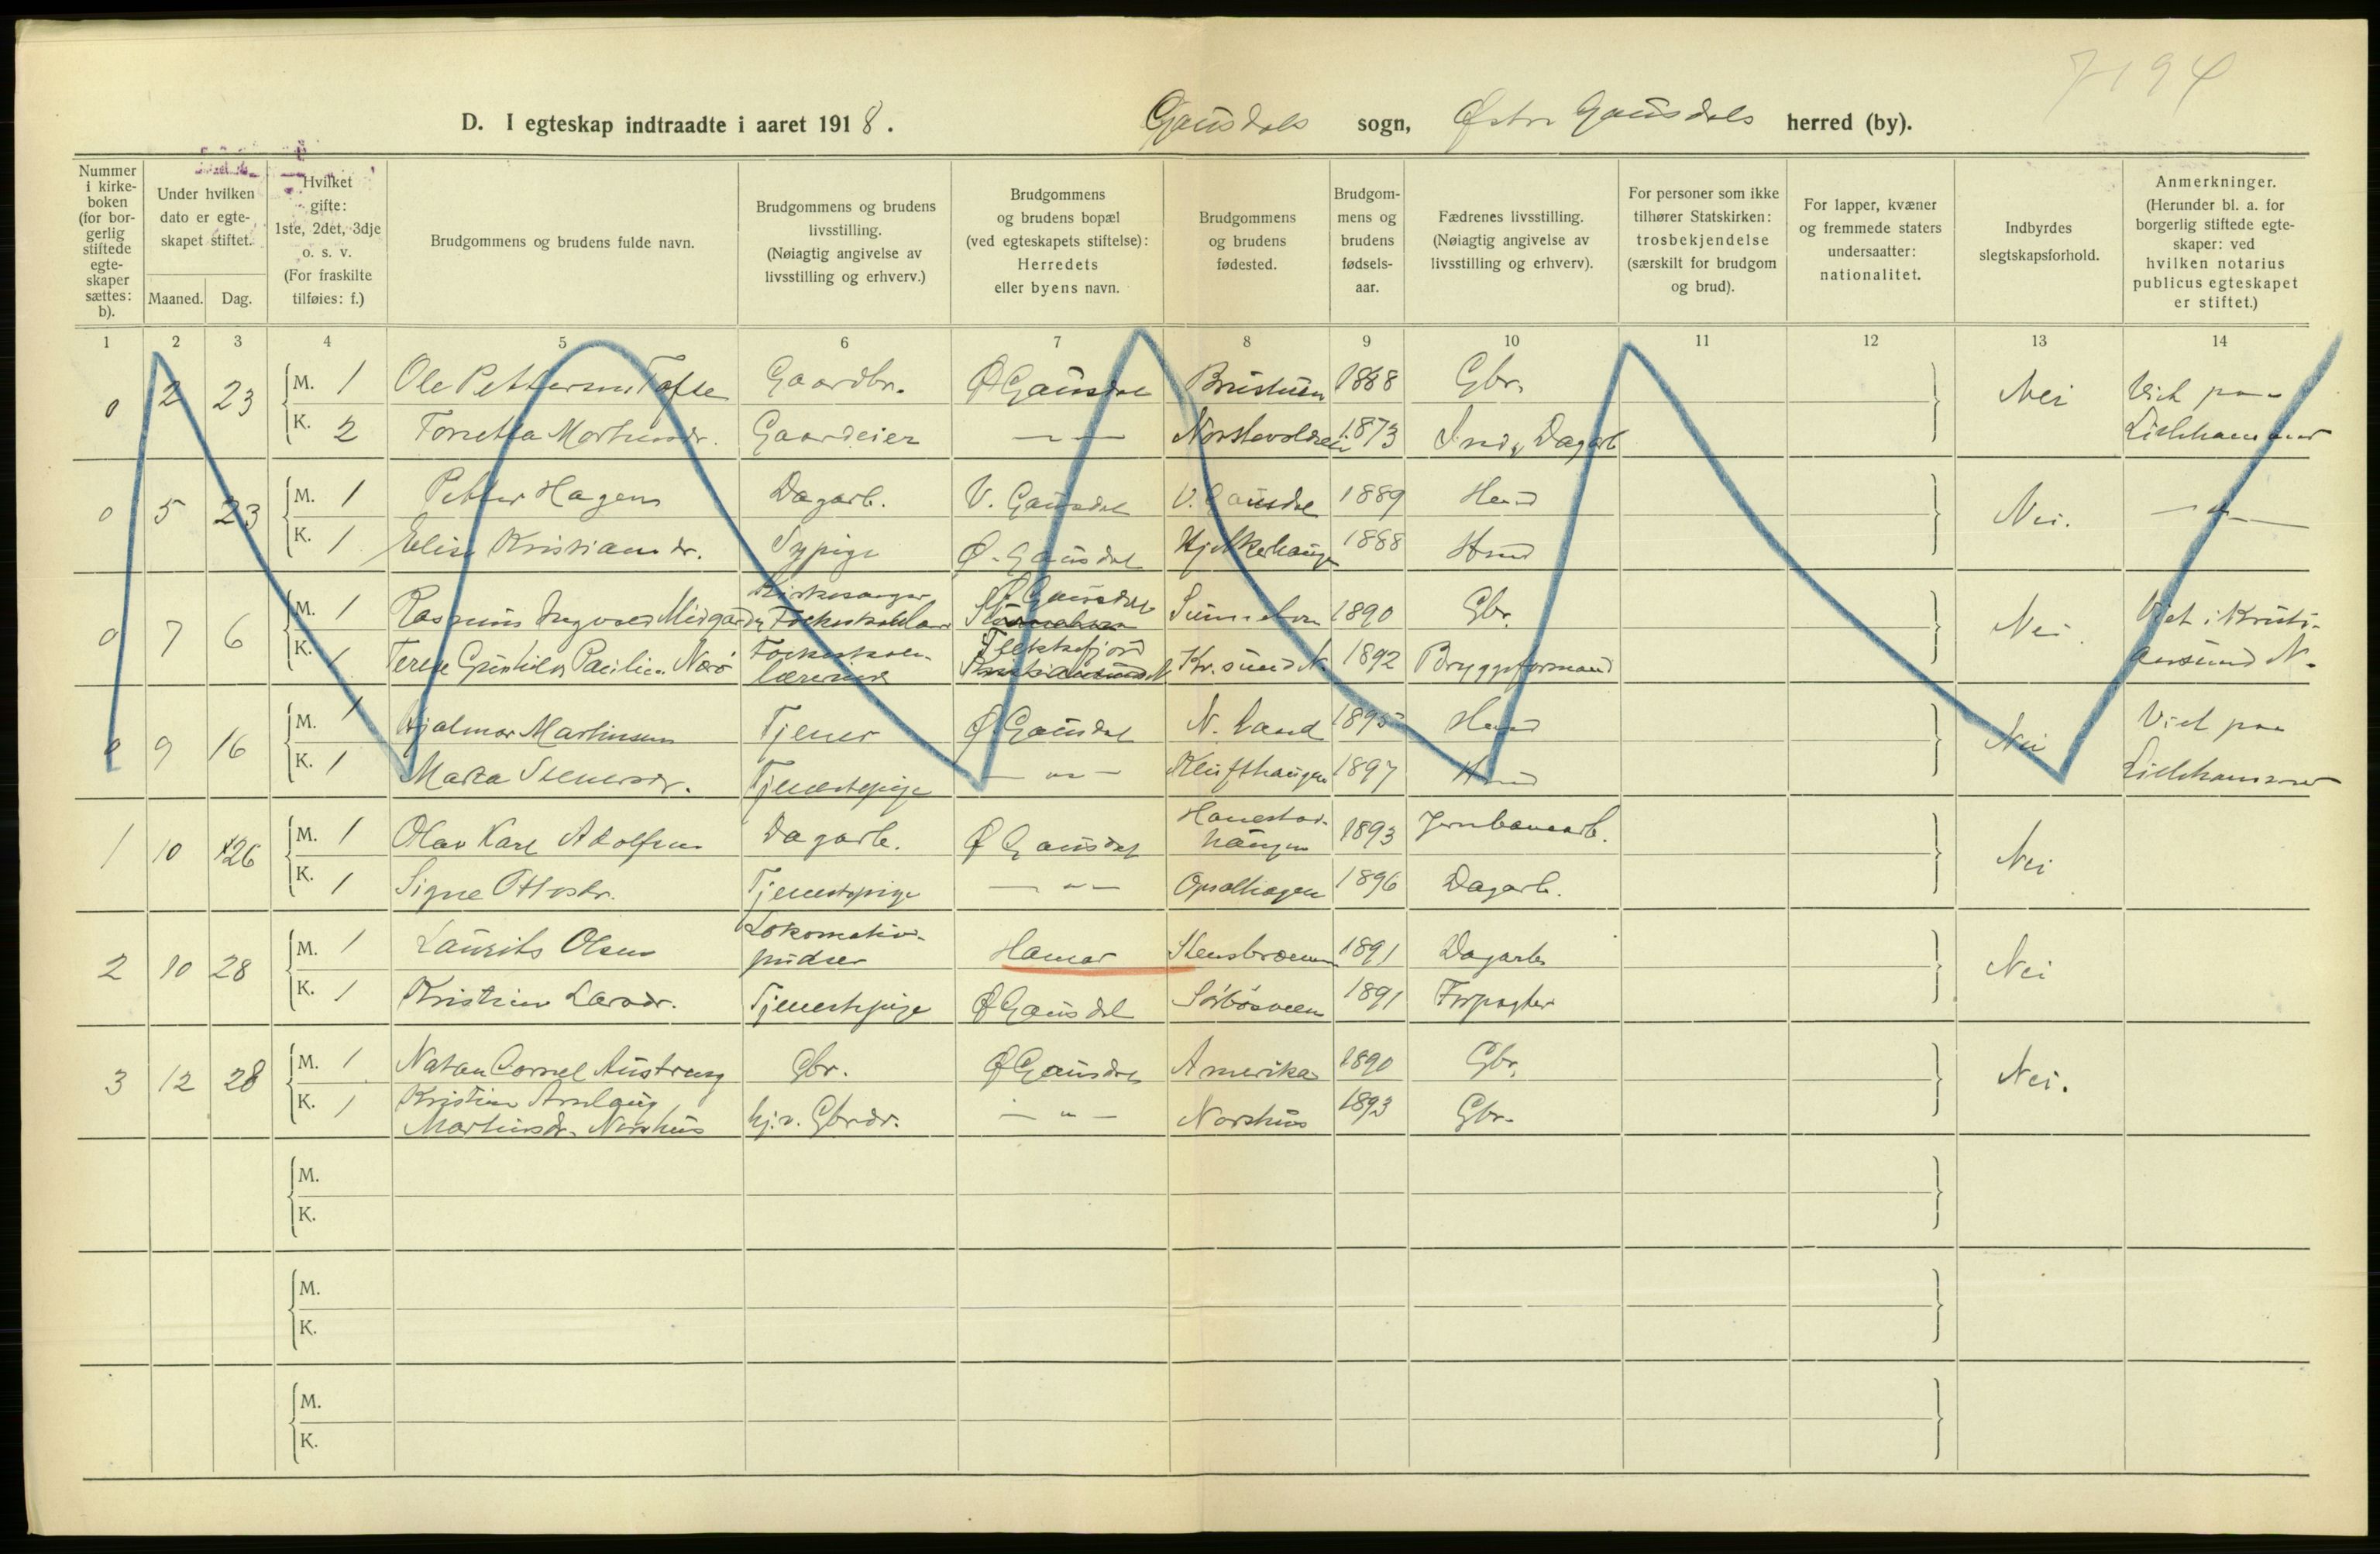 7194
D. I egteskap indtraadte i aaret 1918. Gausdals sogn, Østre Gausdals herred (by).
Nummer i kirkeboken (for borgerlig stiftede egteskaper sættes: b).
Under hvilken dato er egteskapet stiftet.
Maaned. Dag.
Hvilket gifte: 1ste, 2det, 3dje o. s. v. (For fraskilte tilføies: f.)
Brudgommens og brudens fulde navn.
Brudgommens og brudens livsstilling. (Nøiagtig angivelse av livsstilling og erhverv.)
Brudgommens og brudens bopæl (ved egteskapets stiftelse): Herredets eller byens navn.
Brudgommens og brudens fødested.
Brudgommens og brudens fødselsaar.
Fædrenes livsstilling. (Nøiagtig angivelse av livsstilling og erhverv).
For personer som ikke tilhører Statskirken: trosbekjendelse (særskilt for brudgom og brud).
For lapper, kvæner og fremmede staters undersaatter: nationalitet.
Indbyrdes slegtskapsforhold.
Anmerkninger. (Herunder bl. a. for borgerlig stiftede egteskaper: ved hvilken notarius publicus egteskapet er stiftet.)
1 2 3 4 5 6 7 8 9 10 11 12 13 14
0 2 23 M. 1 Ole Pettersen Tofte Gaardbr. Ø Gausdal 1888 Gbr. Nei Viet paa
K. 2 Gaardeier — 1873 Ind., Dagarb Lillehammer
0 5 23 M. 1 Petter Hagen Dagarb. V. Gausdal V. Gausdal 1889 Hmd Nei. — " —
K. 1 Elise Kristiansdr. Sypige Ø. Gausdal 1888 Hmd
0 7 6 M. 1 Rasmus Ingvald Midgarden Kirkesanger Ø. Gausdal 1890 Gbr. Nei Viet i Kristi-
K. 1 Terese Gunhilda Pauline Norö Folkeskole-lærerinde Flekkefjord Kr.sund N. 1892 Bryggeformand ansund N.
0 9 16 M. 1 Hjalmar Martinsen Tjener Ø Gausdal N. Land 1895 Hmd Nei Viet paa
K. 1 Marta Stenersdr. Tjenestepige — " — Klufthaugen 1897 Hmd Lillehammer
1 10 26 M. 1 Olav Karl Adolfsen Dagarb. Ø Gausdal 1893 Jernbanearb. Nei
K. 1 Signe Ottosdr. Tjenestepige — " — Opsalhagen 1896 Dagarb.
2 10 28 M. 1 Laurits Olsen Lokomotiv-pudser Hamar Stensbroenn 1891 Dagarb Nei
K. 1 Kristine Larsdr. Tjenestepige Ø Gausdal 1891 Forpagter
3 12 28 M. 1 Natan Cornel Austrung Gbr. Ø Gausdal Amerika 1890 Gbr. Nei.
K. 1 Kristine Arnlaug Martinsdr. Norshus hj.v. Gbrdr. — " — Norshus 1893 Gbr.
M.
K.
M.
K.
M.
K.